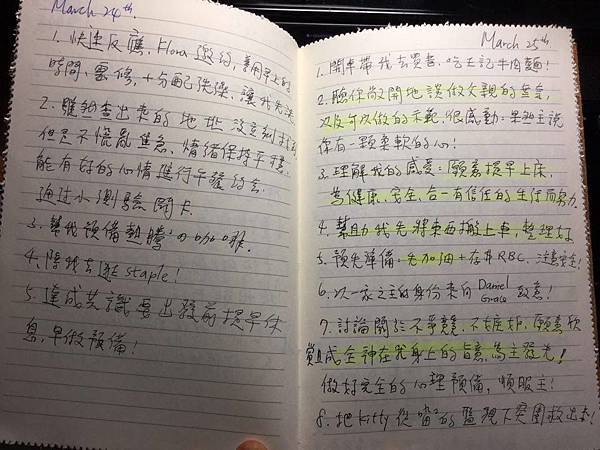 March 24th.
1. 快速反應, Flora 邀約, 善用早上的
時間, 靈修, 十分配洗澡, 讓我先洗
2. 雖然查出來的地址, 沒立刻找到
但是不慌亂焦急, 情緒保持平穩,
能有好的心情進行午餐約會.
通过小測驗閞卡.
3. 幫我預備熱騰的咖啡.
4. 陪我去逛 staple!
5. 達成共識要出發前提早休
息, 早做預備!
March 25th.
1. 開車帶我去買書, 吃王記牛肉麵!
2. 聽你敞開地談做父親的
以及可以做的示範, 很感動:
你有一顆柔軟的心!
3. 理解我的感受: 願意提早上床,
為健康, 安全, 合一有信任的生行而努力
4. 幫助我先將東西搬上車, 整理好
5. 預先準備: 先加油 + 存弁RBC, 注意安全!
6. 以一家之主的身份来向 Daniel Grace 致意!
7. 討論關於不爭競, 不嫉妒, 願意欣
賞組成全神在我身上的旨意, 為主發光!
做好完全的心理預備, 順服主!
8. 把 Kitty 從 的監視下突圍救出去!